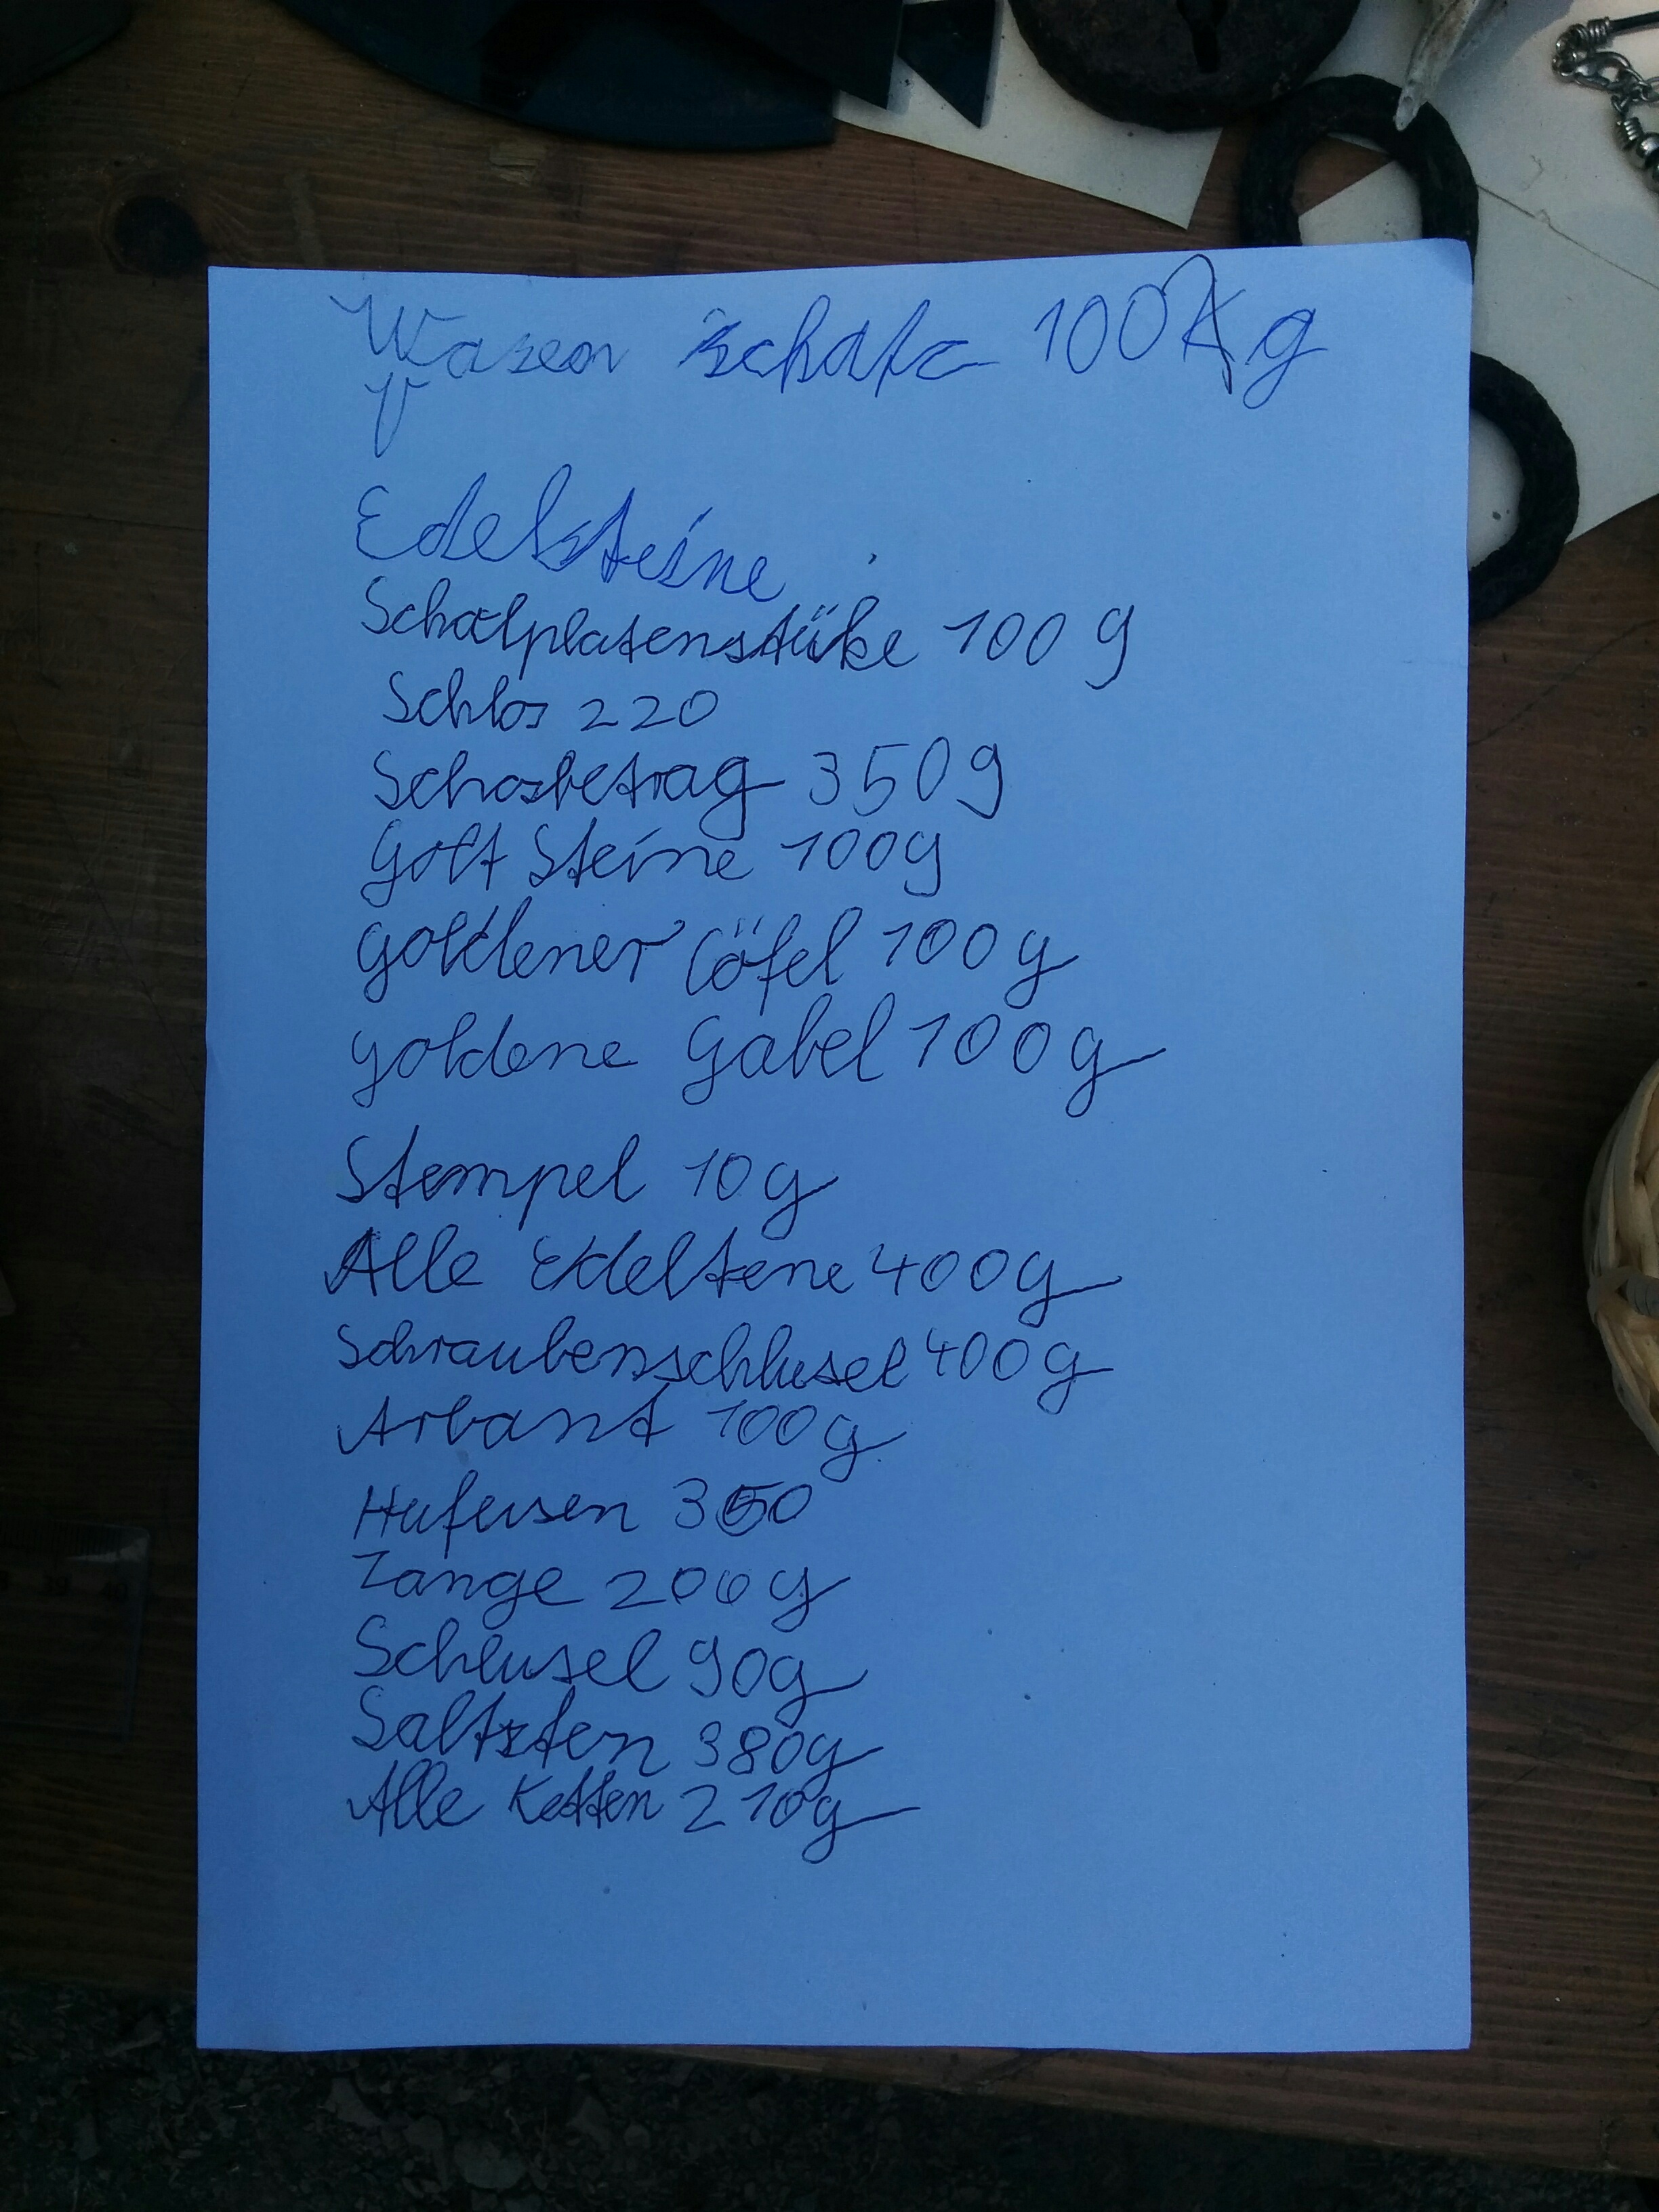 Wasen schatz 100 Kg
V
Edelsteine
Schalplatenstüke 100 g
Schlos 220
Schosbetrag 350g
Golt Steine 100g
goldener Löfel 100 g
goldene Gabel 100g
Stempel 10g
Alle Edeltene 400g
Schraubenschlusel 400g
Arbant 100g
Hufeisen 350
Zange 200g
Schlusel 90g
Saltstern 380g
Alle Ketten 210g